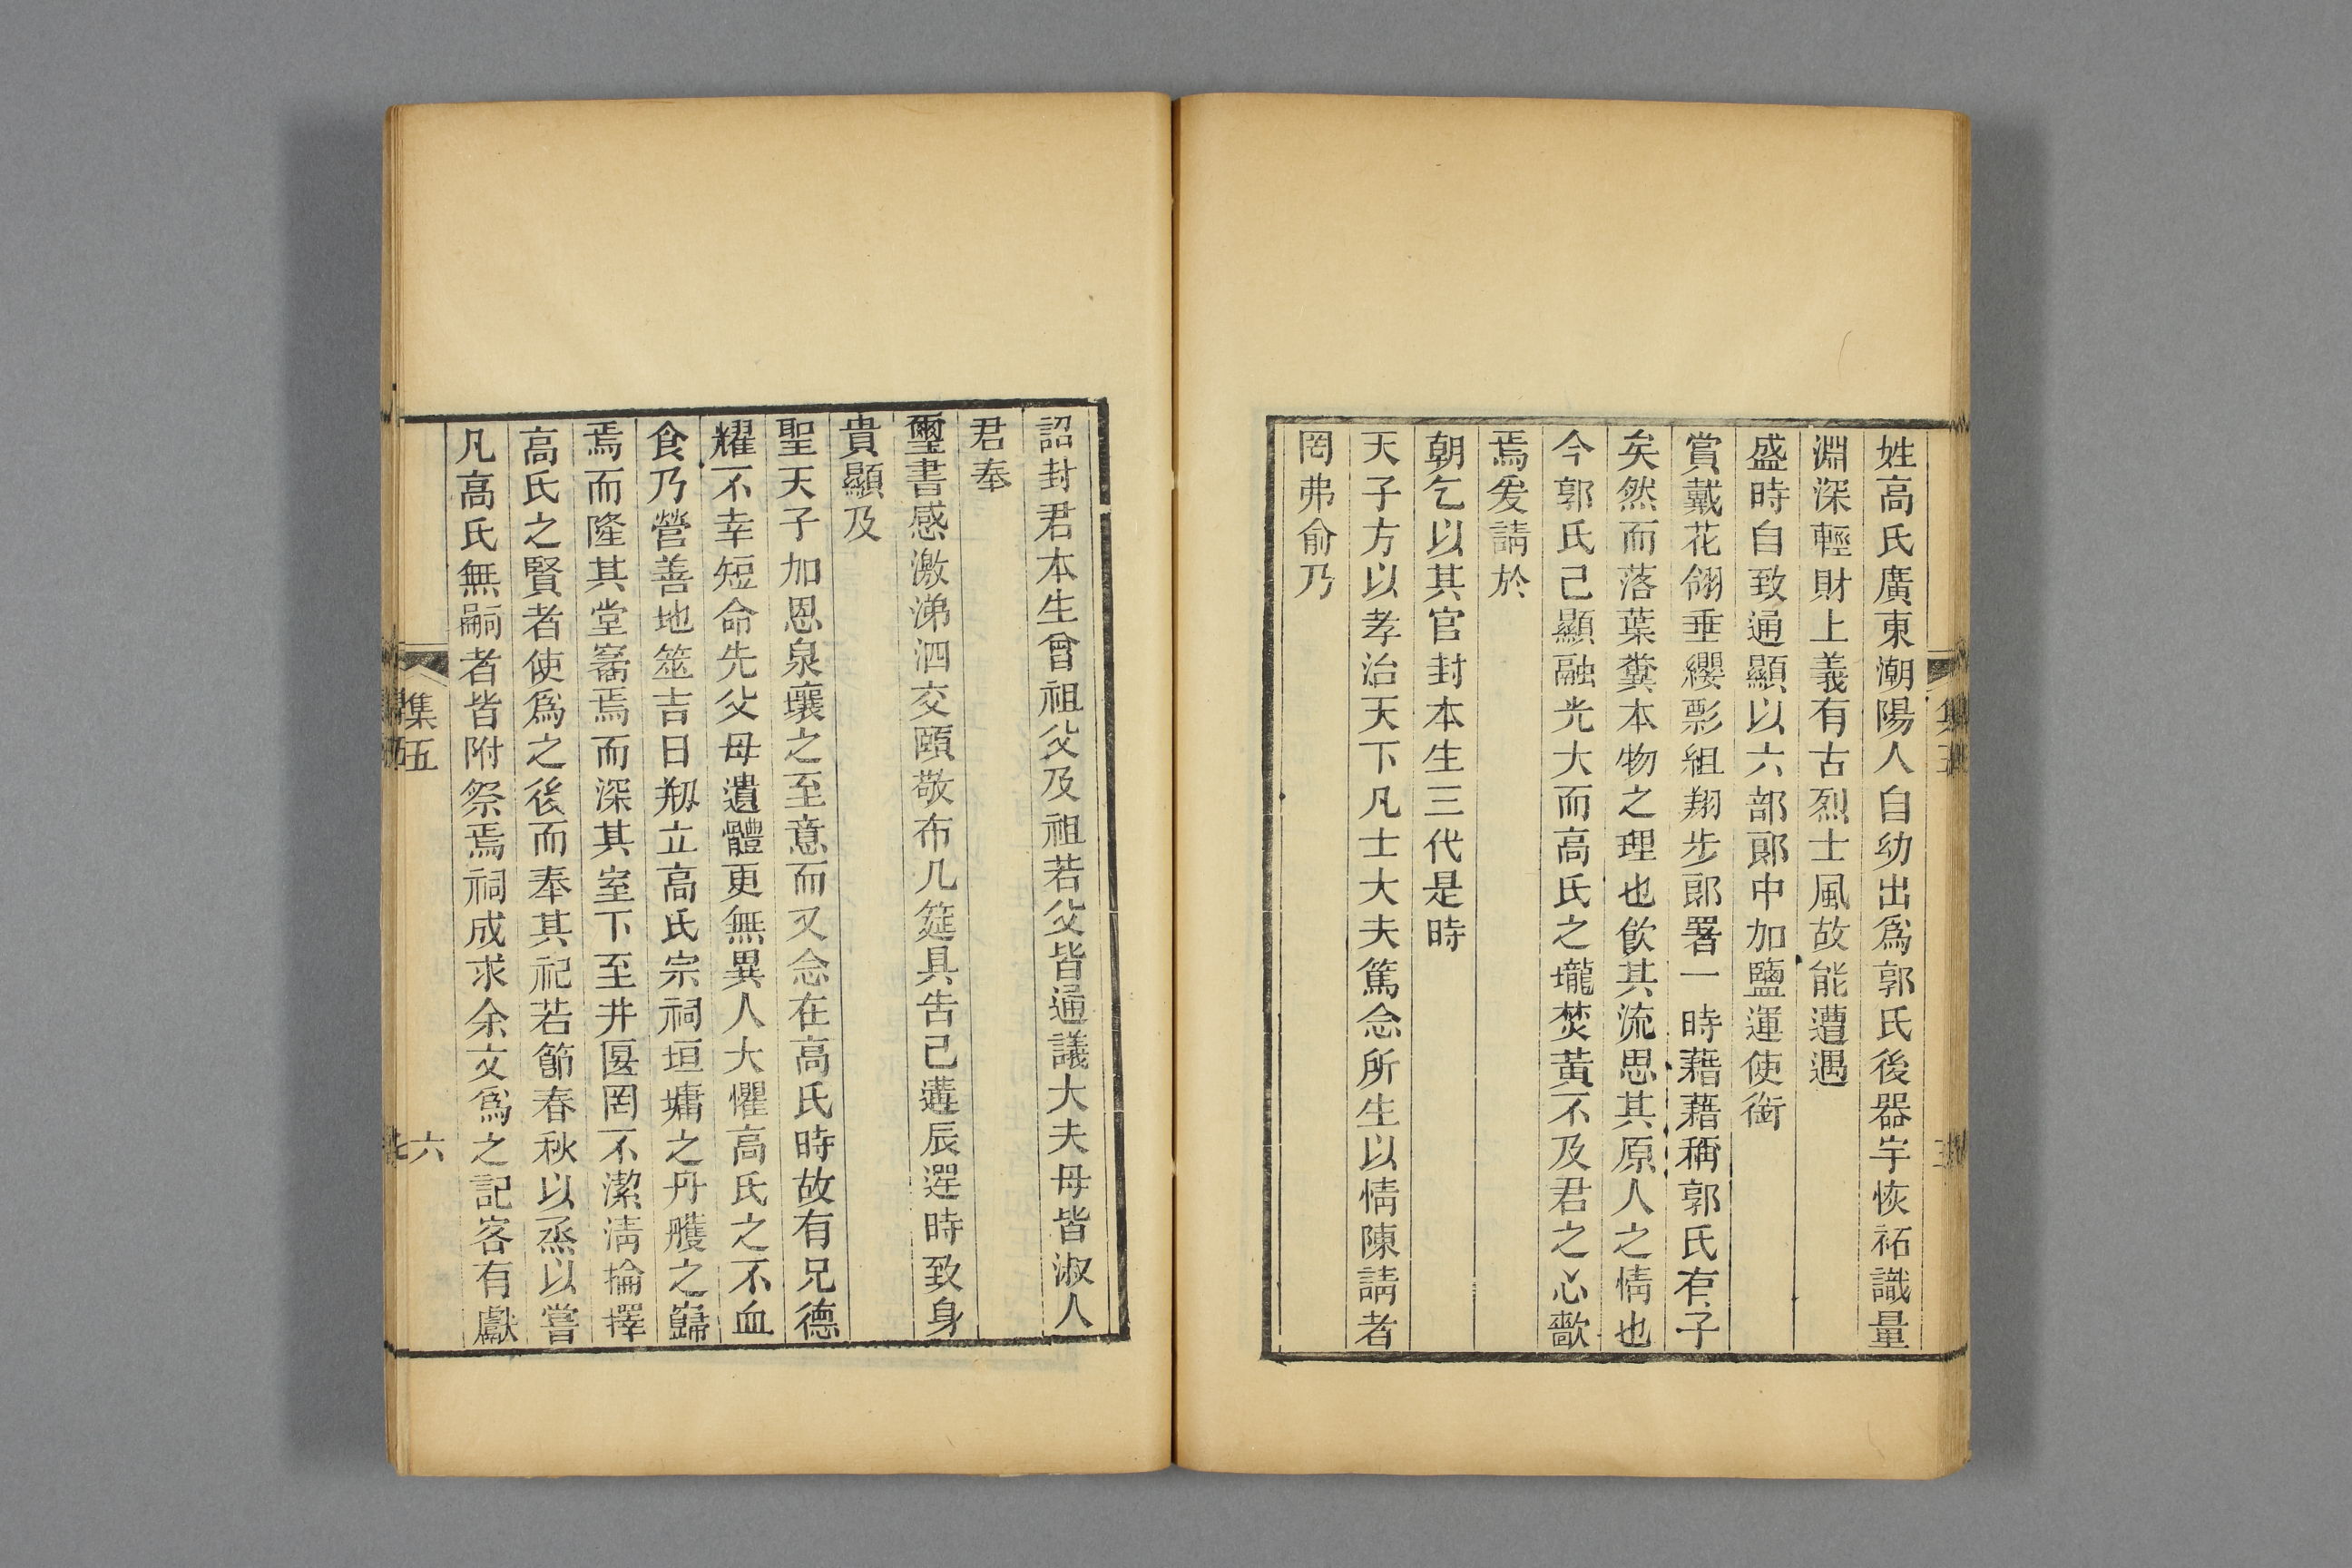 姓高氏廣東潮陽人自幼出爲郭氏後器宇恢祏識量
淵深輕財上義有古烈士風故能遭遇
盛時自致通顯以六部郎中加鹽運使銜
賞戴花翎垂纓彯組翔步郎署一時藉藉稱郭氏有子
矣然而落葉糞本物之理也飮其流思其原人之情也
今郭氏己顯融光大而高氏之壠焚黃不及君之心歉
焉爰請於
朝乞以其官封本生三代是時
天子方以孝治天下凡士大夫篤念所生以情陳請者
罔弗俞乃
詔封君本生曾祖父及祖若父皆通議大夫母皆淑人
君奉
璽書感激涕泗交頤敬布几筵具告己遘辰選時致身
貴顯及
聖天子加恩泉壤之至意而又念在高氏時故有兄德
耀不幸短命先父母遺體更無異人大懼高氏之不血
食乃營善地筮吉日剏立高氏宗祠垣墉之丹雘之巋
焉而隆其堂窱焉而深其室下至井匽罔不潔淸掄擇
高氏之賢者使爲之後而奉其祀若節春秋以烝以嘗
凡高氏無嗣者皆附祭焉祠成求余文爲之記客有獻
集五
六